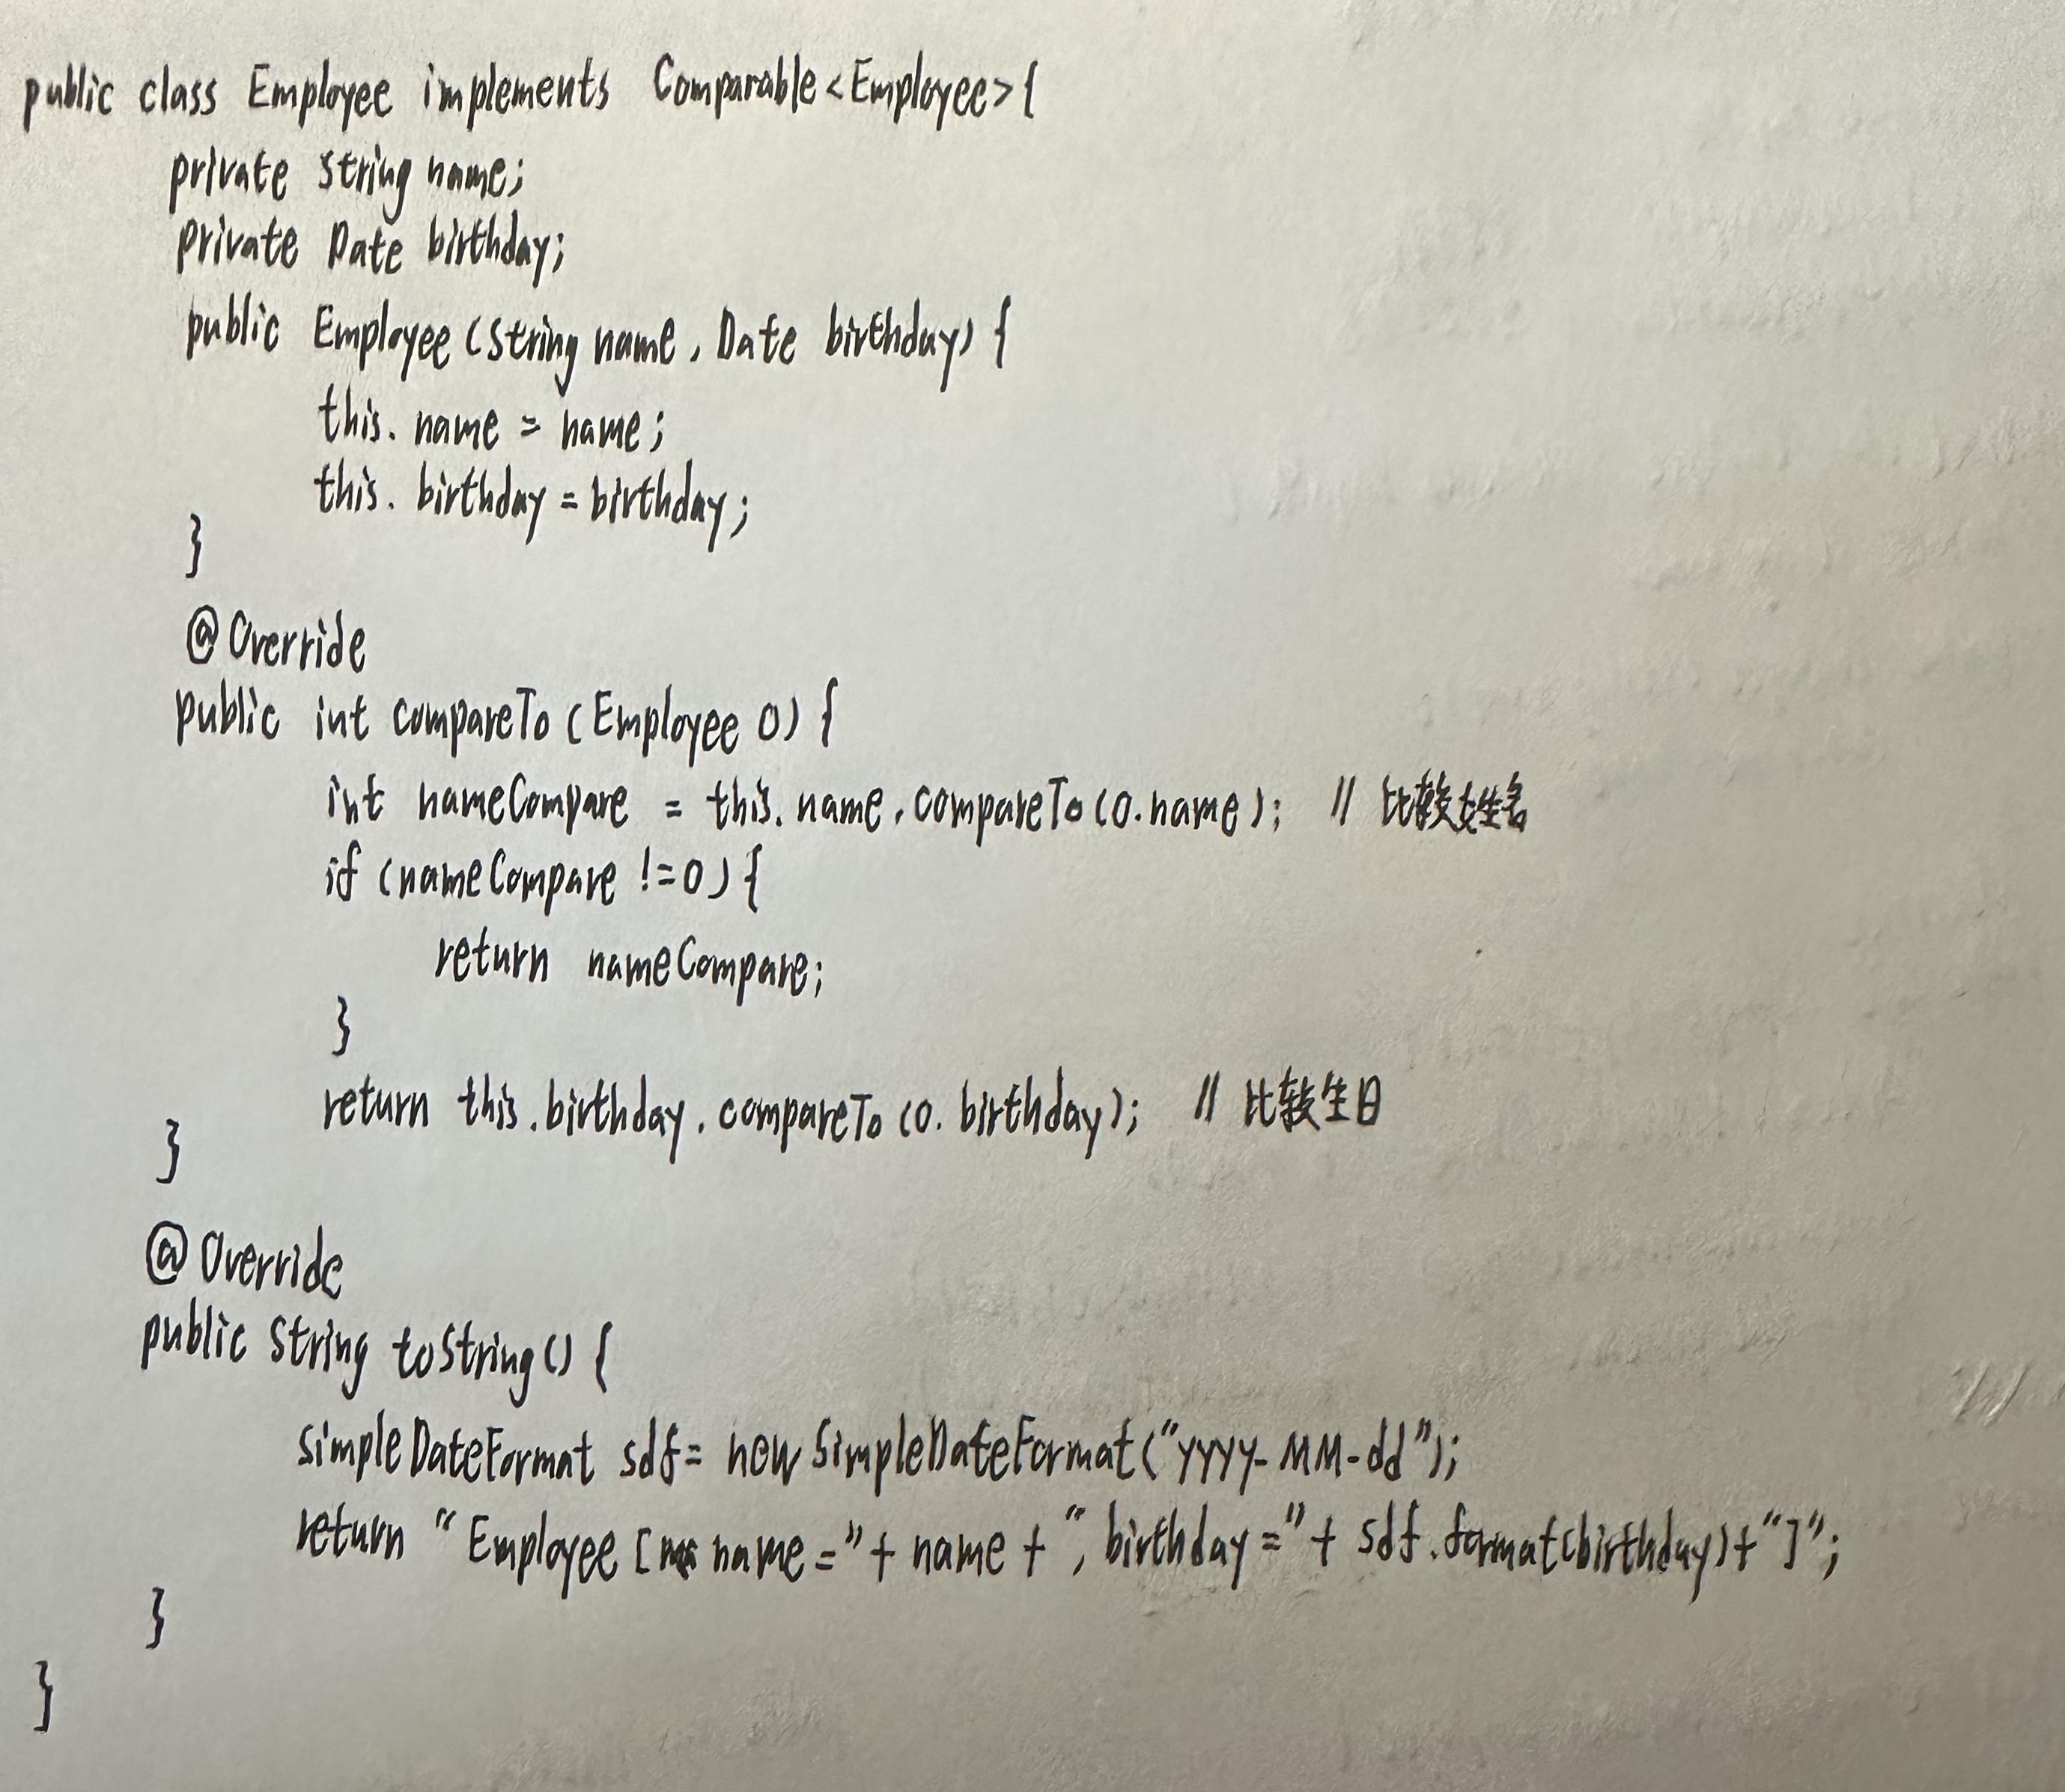 public class Employee implements Comparable<Employee>{
private String name;
private Date birthday;
public Employee (String name, Date birthday) {
this. name = name;
this. birthday = birthday;
}
@Override
public int compareTo (Employee o) {
int nameCompare = this. name. compareTo (o.name); // 比较姓名
if (nameCompare !=0) {
return nameCompare;
}
return this.birthday. compareTo (o. birthday); // 比较生日
}
@Override
public String toString() {
SimpleDateFormat sdf= new SimpleDateFormat("yyyy-MM-dd");
return "Employee [name="+ name + ", birthday ="+ sdf.format(birthday)+"]";
}
}